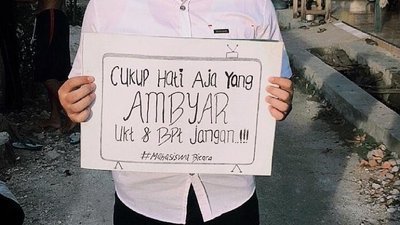 Cukup Hati Aja Yang
AMBYAR
Ukt & BPI Jangan..!!!